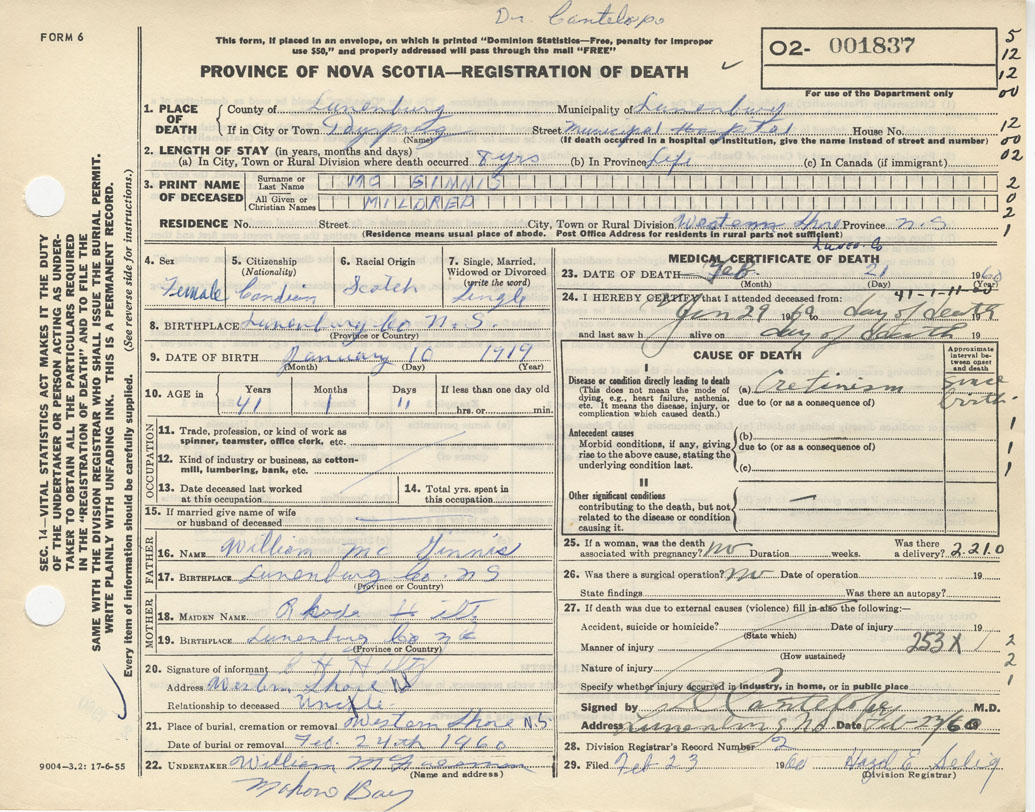 Dr. Cantelope
FORM 6
This form, if placed in an envelope, on which is printed "Dominion Statistics—Free, penalty for improper
use $50," and properly addressed will pass through the mail "FREE"
PROVINCE OF NOVA SCOTIA—REGISTRATION OF DEATH
O2- 001837
For use of the Department only
5
12
12
00
12
00
02
2
0
2
1
SEC. 14—VITAL STATISTICS ACT MAKES IT THE DUTY
OF THE UNDERTAKER OR PERSON ACTING AS UNDER-
TAKER TO OBTAIN ALL THE PARTICULARS REQUIRED
IN THE "REGISTRATION OF DEATH" AND TO FILE THE
SAME WITH THE DIVISION REGISTRAR WHO SHALL ISSUE THE BURIAL PERMIT.
WRITE PLAINLY WITH UNFADING INK. THIS IS A PERMANENT RECORD.
Every item of information should be carefully supplied. (See reverse side for instructions.)
1. PLACE OF DEATH
County of Lunenburg Municipality of Lunenburg
If in City or Town Dayspring Street Municipal Hospital House No.
(Name) (If death occurred in a hospital or institution, give the name instead of street and number)
2. LENGTH OF STAY (in years, months and days)
(a) In City, Town or Rural Division where death occurred 8 yrs (b) In Province Life (c) In Canada (if immigrant)
3. PRINT NAME OF DECEASED
Surname or Last Name MC GINNIS
All Given or Christian Names MILDRED
RESIDENCE No. Street City, Town or Rural Division Western Shore Province N.S
(Residence means usual place of abode. Post Office Address for residents in rural parts not sufficient)
Lunen. Co
4. Sex Female
5. Citizenship (Nationality) Candian
6. Racial Origin Scotch
7. Single, Married, Widowed or Divorced (write the word) Single
8. BIRTHPLACE Lunenburg Co N.S.
(Province or Country)
9. DATE OF BIRTH January 10 1919
(Month) (Day) (Year)
10. AGE in
Years 41 Months 1 Days 11 If less than one day old
hrs. or min.
OCCUPATION
11. Trade, profession, or kind of work as
spinner, teamster, office clerk, etc.
12. Kind of industry or business, as cotton-
mill, lumbering, bank, etc.
13. Date deceased last worked
at this occupation
14. Total yrs. spent in
this occupation
15. If married give name of wife
or husband of deceased
FATHER
16. NAME William Mc Ginnis
17. BIRTHPLACE Lunenburg Co N S
(Province or Country)
MOTHER
18. MAIDEN NAME Rhoda
19. BIRTHPLACE Lunenburg Co N S
(Province or Country)
20. Signature of informant
Address Western Shore N S
Relationship to deceased Uncle
21. Place of burial, cremation or removal Western Shore N.S
Date of burial or removal Feb. 24th 1960
22. UNDERTAKER William
(Name and address)
Mahone Bay
9004—3.2: 17-6-55
MEDICAL CERTIFICATE OF DEATH
23. DATE OF DEATH Feb. 21 1960
(Month) (Day) (Year)
41-1-11
24. I HEREBY CERTIFY that I attended deceased from:
Jan 29 1960 to day of death
and last saw h alive on day of death 19
CAUSE OF DEATH
Approximate interval between onset and death
I
Disease or condition directly leading to death
(This does not mean the mode of
dying, e.g., heart failure, asthenia,
etc. It means the disease, injury, or
complication which caused death.)
(a) Cretinism since birth
due to (or as a consequence of)
Antecedent causes
Morbid conditions, if any, giving
rise to the above cause, stating the
underlying condition last.
(b)
due to (or as a consequence of)
(c)
1
1
1
II
Other significant conditions
contributing to the death, but not
related to the disease or condition
causing it.
25. If a woman, was the death
associated with pregnancy? no Duration weeks. Was there
a delivery? 2.21.0
26. Was there a surgical operation? no Date of operation 19
State findings Was there an autopsy?
27. If death was due to external causes (violence) fill in also the following:—
Accident, suicide or homicide? Date of injury 19
(State which)
Manner of injury 253X 1
(How sustained)
2
2
Nature of injury
1
Specify whether injury occurred in industry, in home, or in public place
Signed by Cantelope M.D.
Address Lunenburg N.S. Date Feb 22/60
28. Division Registrar's Record Number 2
29. Filed Feb 23 1960 Hazel E Selig
(Division Registrar)